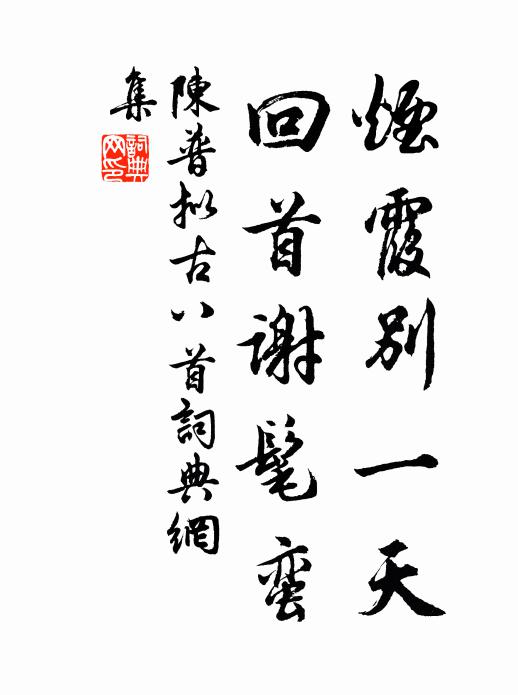 煙霞別一天
回首謝髦蛮
陳普拟古八首詞典網
集
詞典
网印